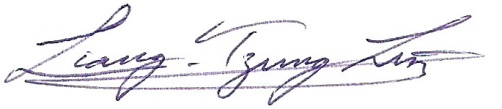 Liang-Tzung Lin